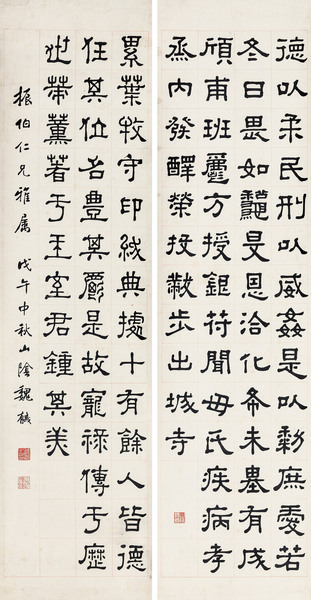 德以柔民刑以威姦是以黎庶愛若
冬日畏如龝旻恩洽化布未朞有成
頌甫班爵方授銀符聞母氏疾病孝
烝內發醳榮投黻步出城寺
累葉牧守印紱典據十有餘人皆德
任其位名豐其爵是故寵祿傳于歷
世策薰著于王室君鍾其美
振伯仁兄雅屬 戊午中秋山陰魏戫